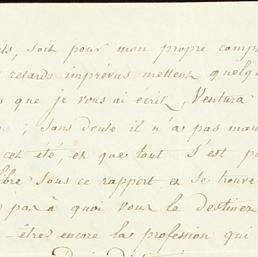 soit pour mon propre comp
retards imprévus mettent quelq
que je vous ai écrit, Ventura
; sans doute il n'a pas man
cet été, et que tout s'est pa
sous ce rapport et se trouve
pas à quoi vous le destinez
être encore la profession qui